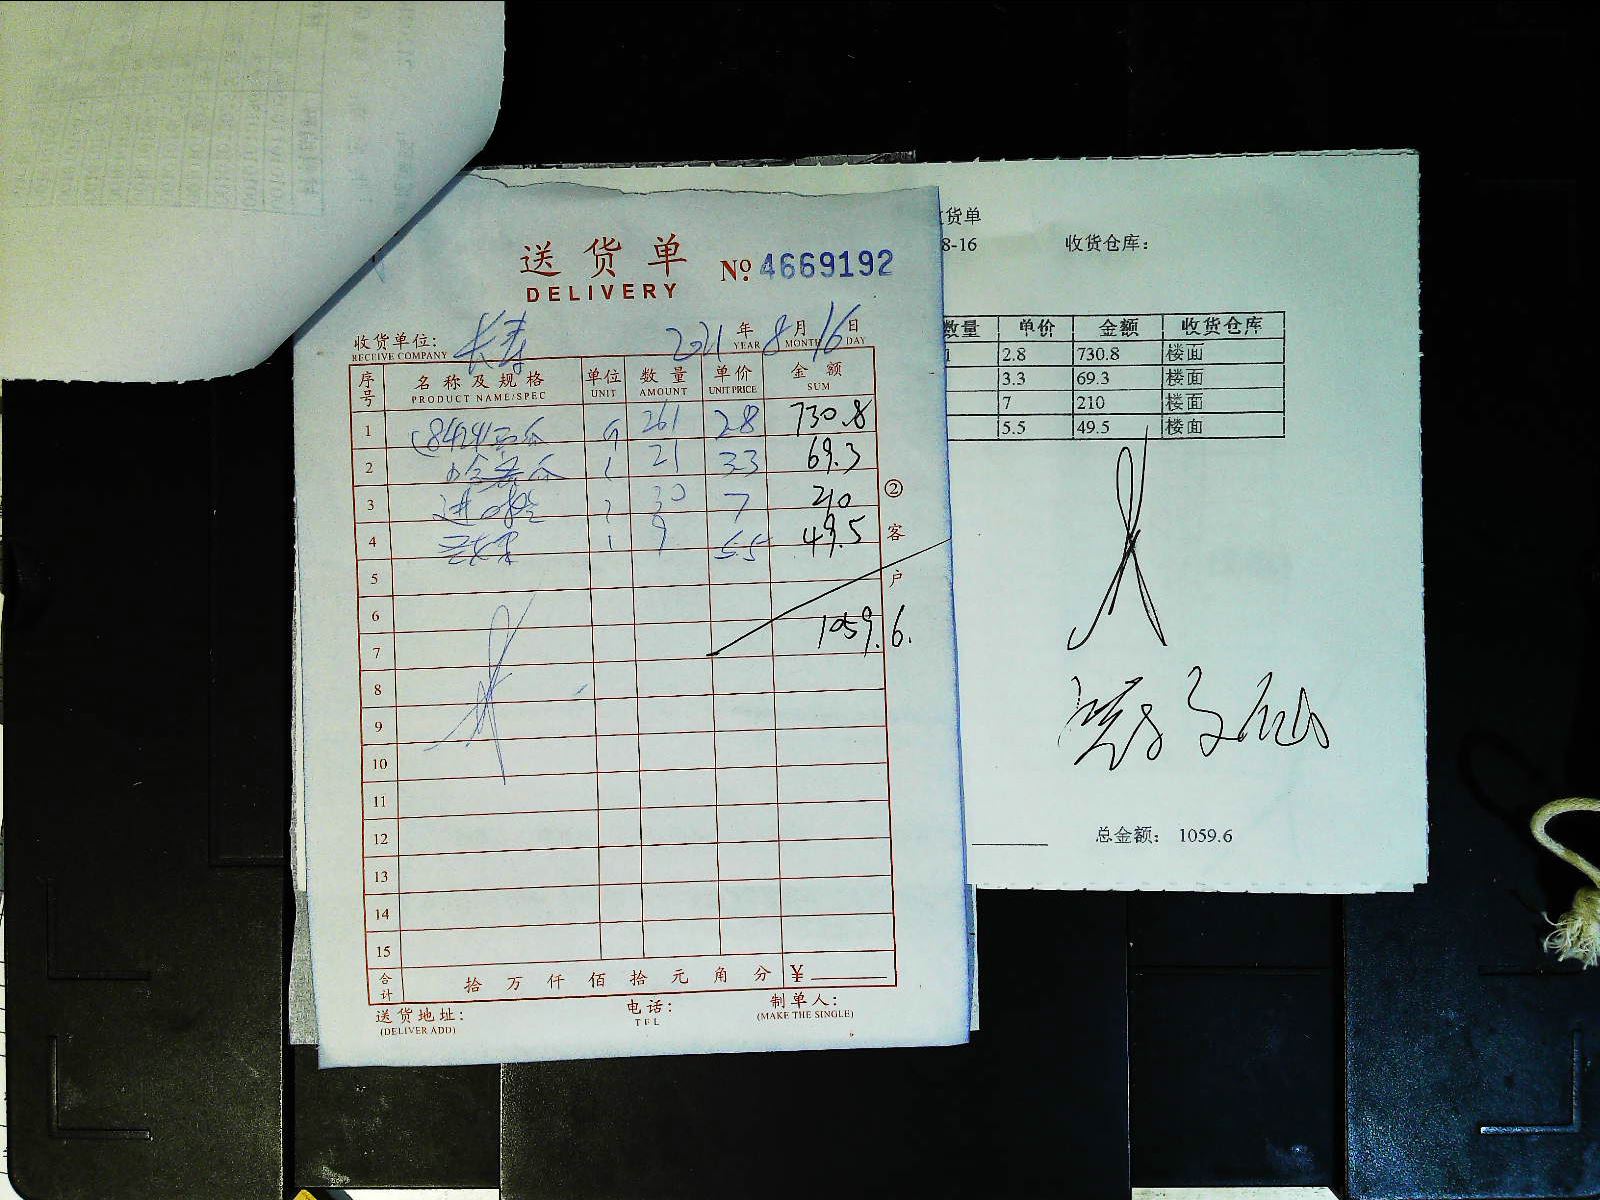 送货单 № 4669192
DELIVERY
收货单位: 长寿 2021 年 8 月 16 日
RECEIVE COMPANY YEAR MONTH DAY
序号 名称及规格 单位 数量 单价 金额
PRODUCT NAME/SPEC UNIT AMOUNT UNIT PRICE SUM
1 8424西瓜 261 2.8 730.8
2 哈密瓜 21 3.3 69.3
3 进口橙 30 7 210
4 9 5.5 49.5
5
6
7 1059.6.
8
9
10
11
12
13
14
15
合计 拾 万 仟 佰 拾 元 角 分 ¥
送货地址: 电话: 制单人:
(DELIVER ADD) TEL (MAKE THE SINGLE)
② 客户
货单
8-16 收货仓库:
数量 单价 金额 收货仓库
1 2.8 730.8 楼面
3.3 69.3 楼面
7 210 楼面
5.5 49.5 楼面
总金额: 1059.6